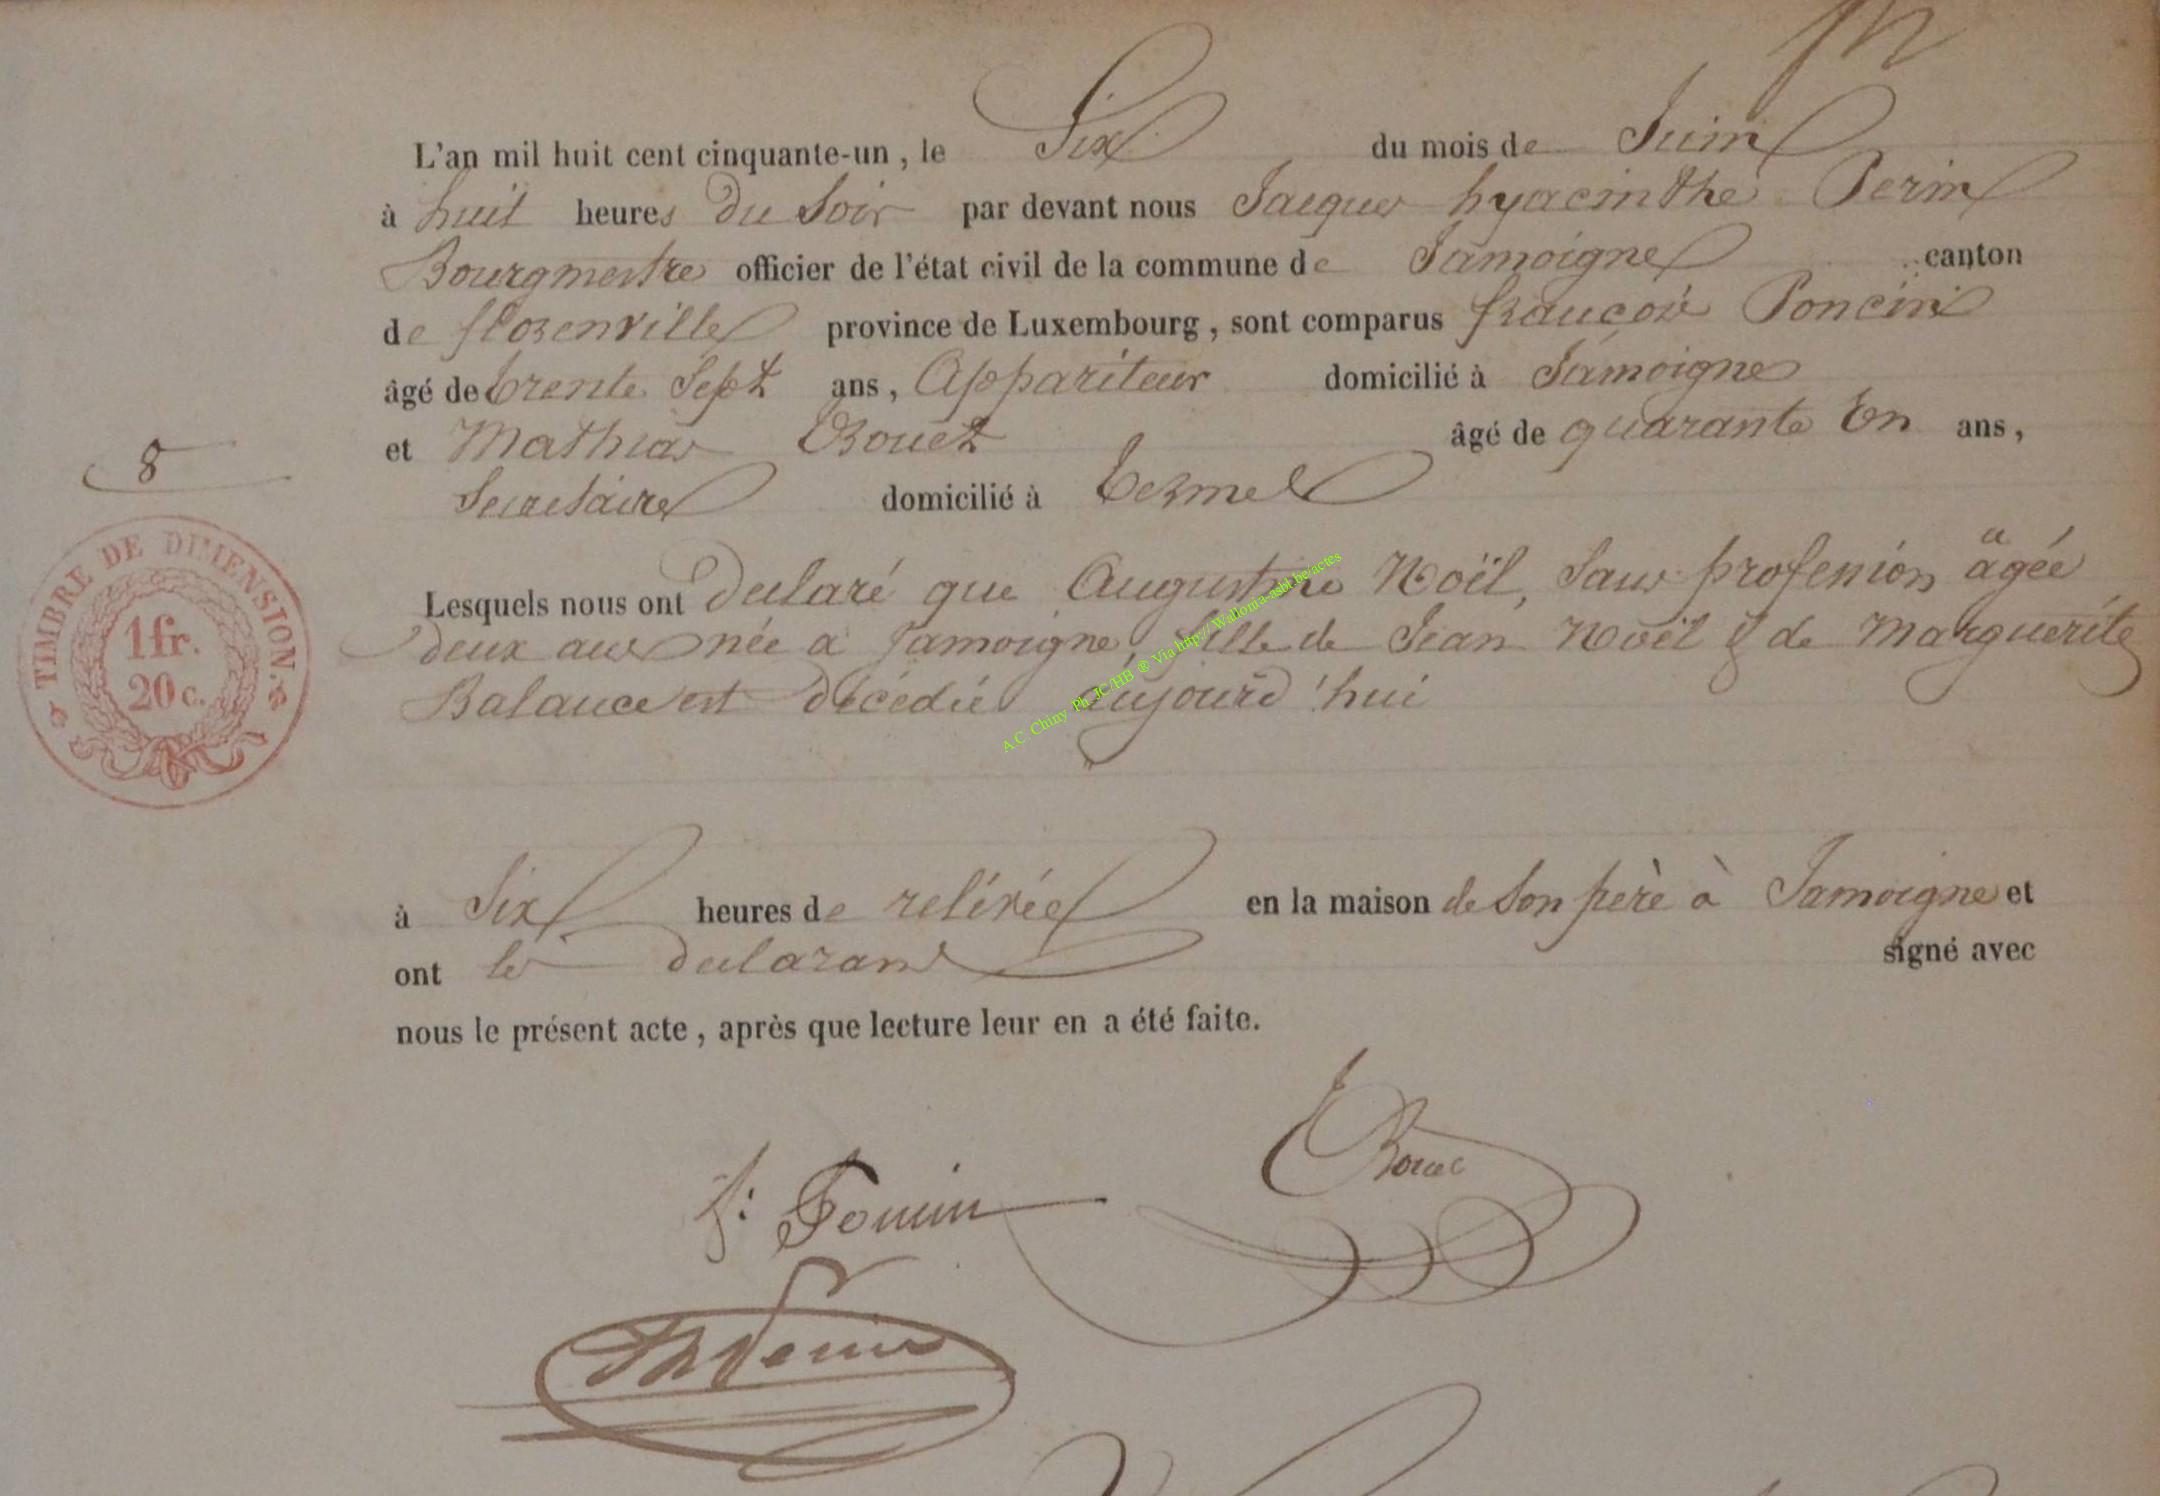 L'an mil huit cent cinquante-un, le Six du mois de Juin
à huit heures du Soir par devant nous Jacques hyacinthe Perin
Bourgmestre officier de l'état civil de la commune de Jamoigne canton
de florenville province de Luxembourg, sont comparus françois Poncin
âgé de trente Sept ans, Appariteur domicilié à Jamoigne
et Mathias Bouet âgé de quarante En ans,
8
Secretaire domicilié à termel
TIMBRE DE DIMENSION.
1 fr.
20 c.
Lesquels nous ont declaré que Augustine Noël, Sans profession agée
deux ans née a jamoigne, fille de Jean Noël & de Marguerite
Balance est décédée aujourd'hui
A.C. Chiny Ph. JC/HB ® Via http://Wallonia-asbl.be/actes
à Six heures de relévée en la maison de Son père à Jamoigne et
ont les declarans signé avec
nous le présent acte, après que lecture leur en a été faite.
Bouet
f: Poncin